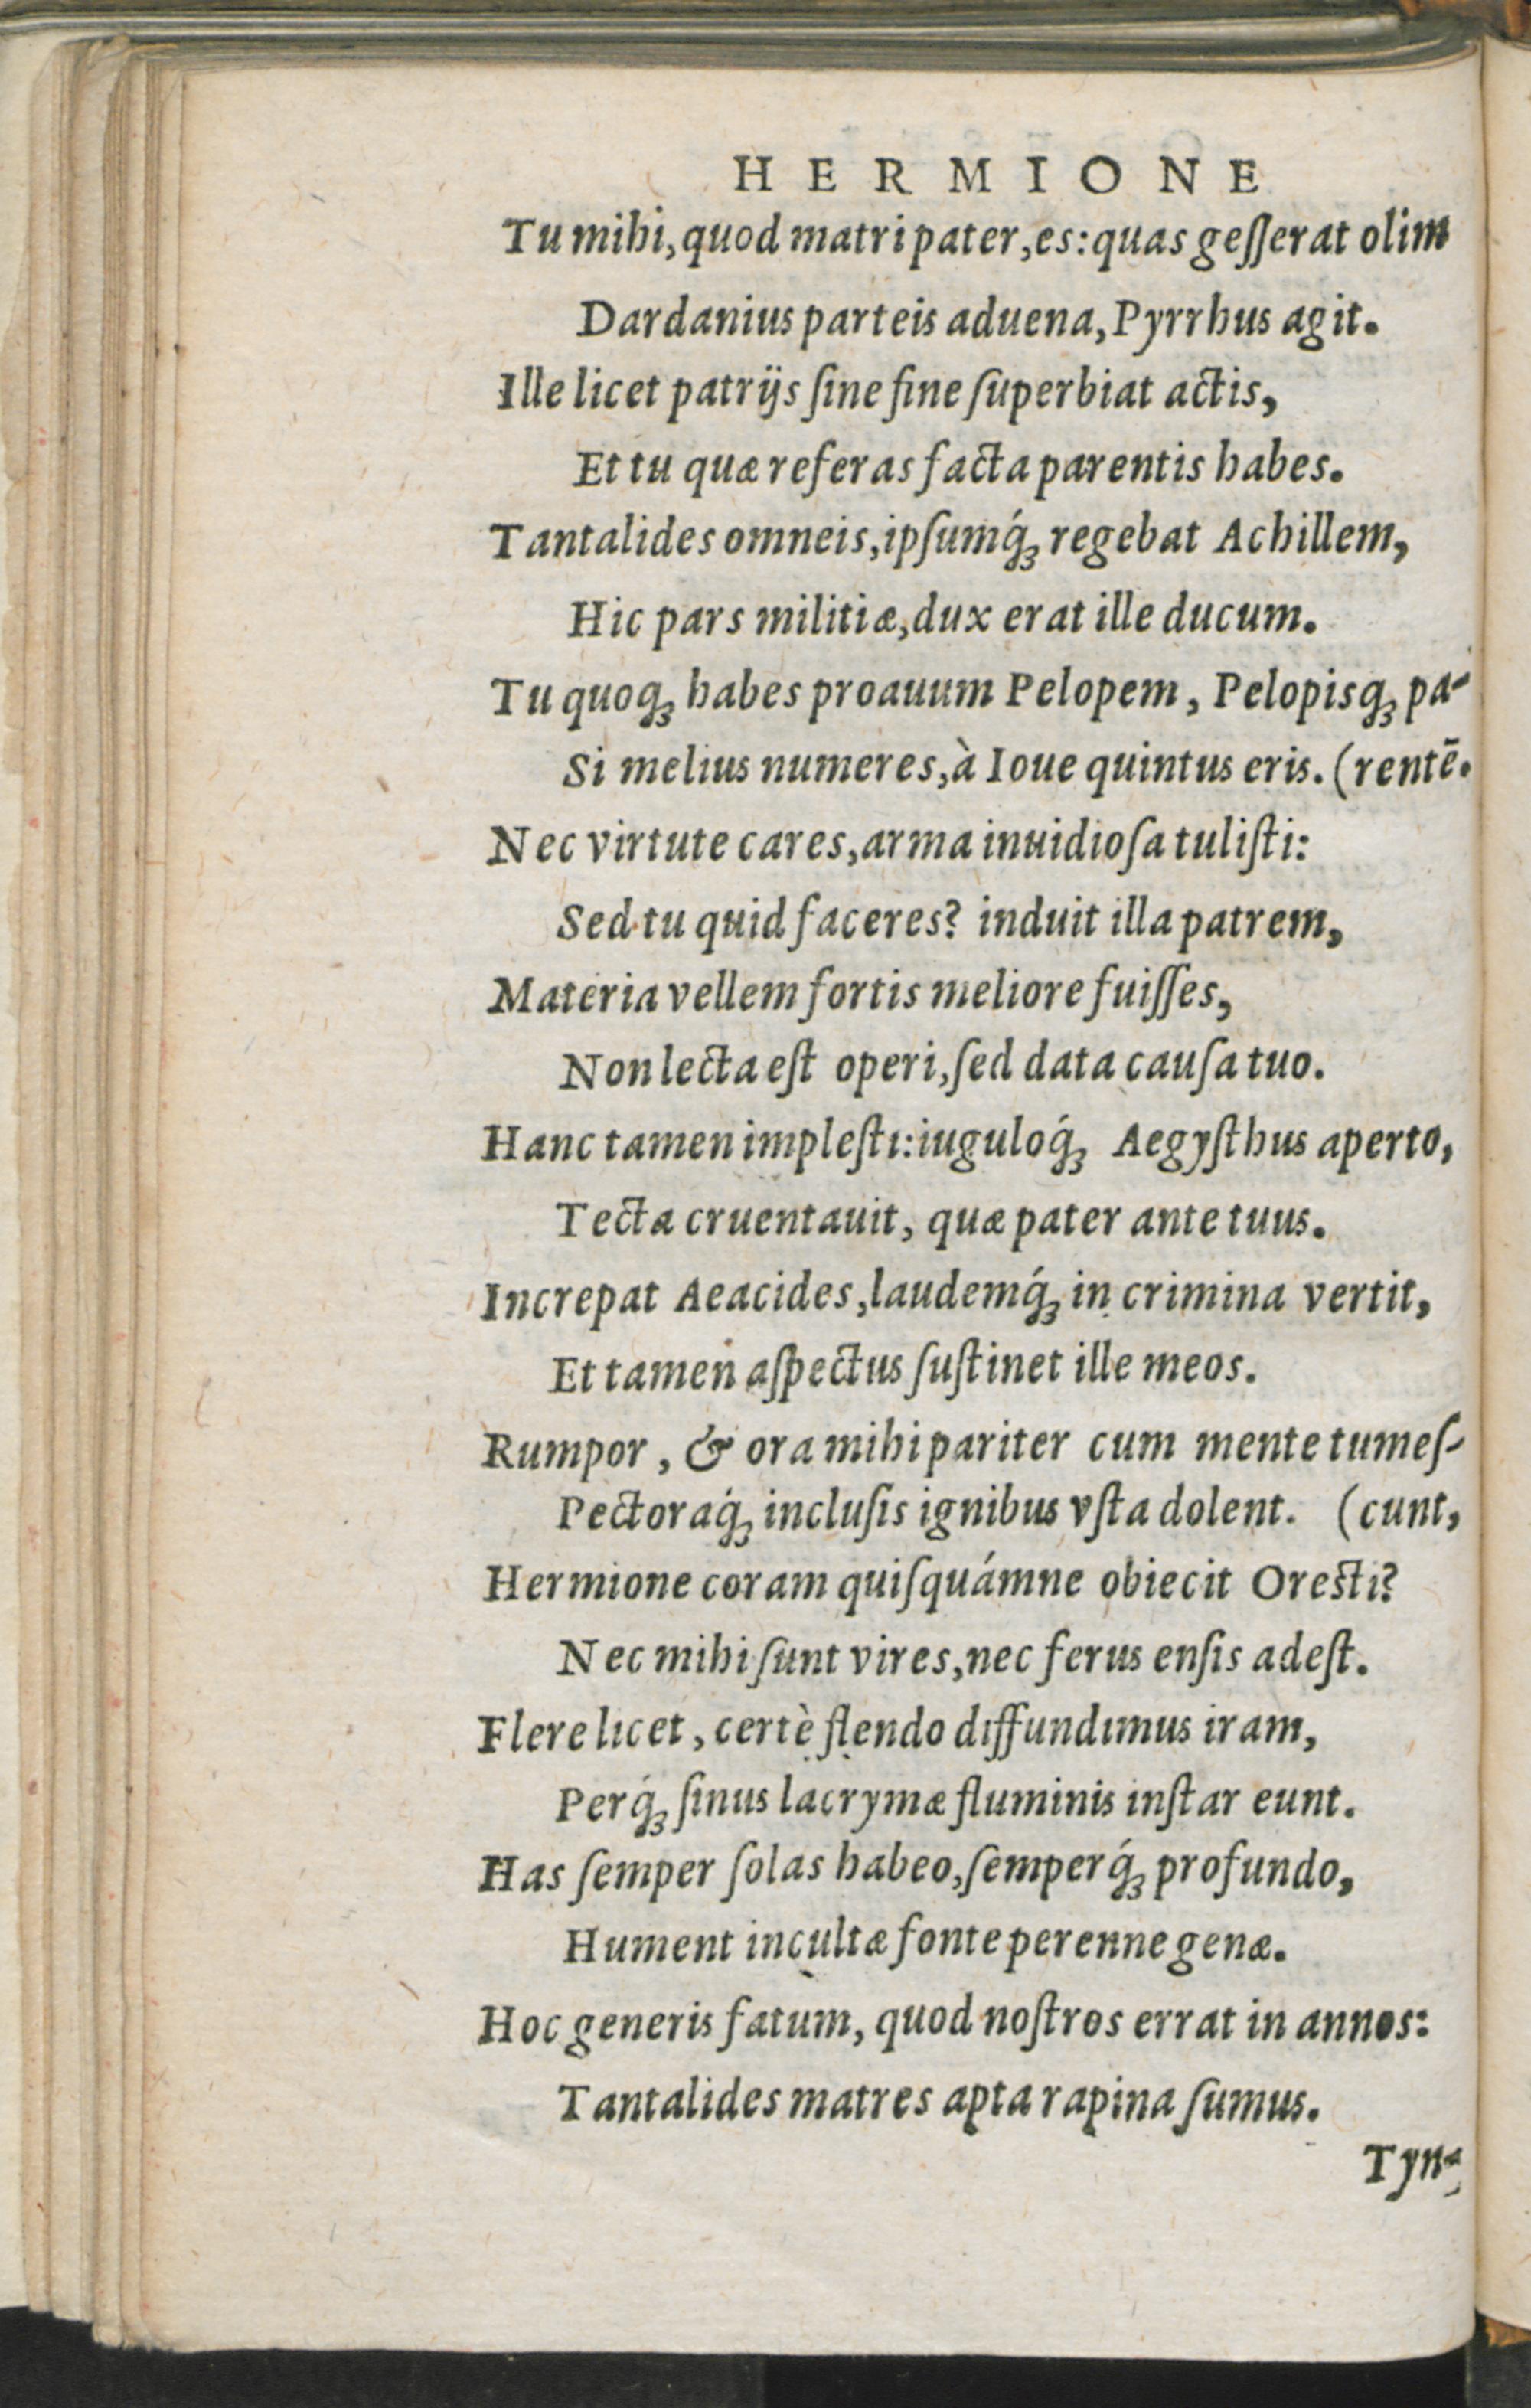 HERMIONE
Tu mihi, quod matri pater, es: quas geſſerat olim
Dardanius parteis aduena, Pyrrhus agit.
Ille licet patrijs ſine fine ſuperbiat actis,
Et tu quæ referas facta parentis habes.
Tantalides omneis, ipſumq́ꝫ regebat Achillem,
Hic pars militiæ, dux erat ille ducum.
Tu quoqꝫ habes proauum Pelopem, Pelopisqꝫ pa-
Si melius numeres, à Ioue quintus eris. (rentē.
Nec virtute cares, arma inuidioſa tuliſti:
Sed tu quid faceres? induit illa patrem,
Materia vellem fortis meliore fuiſſes,
Non lecta eſt operi, ſed data cauſa tuo.
Hanc tamen impleſti: iuguloq́ꝫ Aegyſthus aperto,
Tecta cruentauit, quæ pater ante tuus.
Increpat Aeacides, laudemq́ꝫ in crimina vertit,
Et tamen aſpectus ſuſtinet ille meos.
Rumpor, & ora mihi pariter cum mente tumeſ-
Pectoraq́ꝫ incluſis ignibus vſta dolent. (cunt,
Hermione coram quiſquámne obiecit Oreſti?
Nec mihi ſunt vires, nec ferus enſis adeſt.
Flere licet, certè flendo diffundimus iram,
Perq́ꝫ ſinus lacrymæ fluminis inſtar eunt.
Has ſemper ſolas habeo, ſemperq́ꝫ profundo,
Hument incultæ fonte perenne genæ.
Hoc generis fatum, quod noſtros errat in annos:
Tantalides matres apta rapina ſumus.
Tyn-